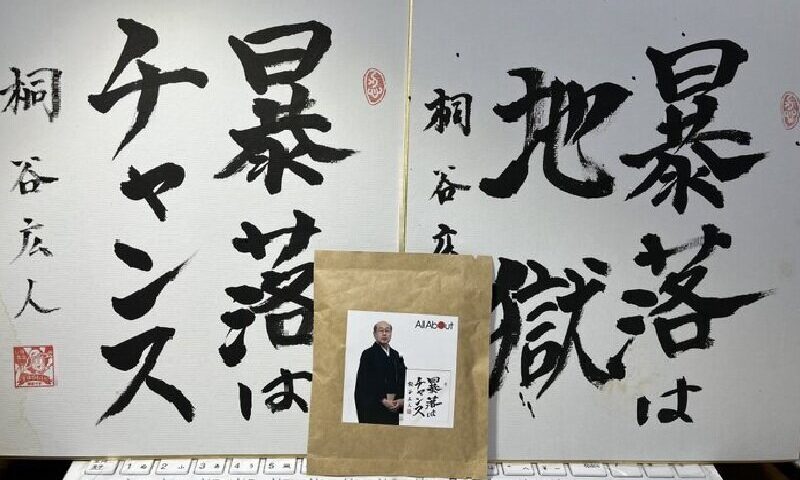 暴落は
地獄
桐谷広
暴落は
チャンス
桐谷広人
AllAbout
暴落は
チャンス
桐谷広人